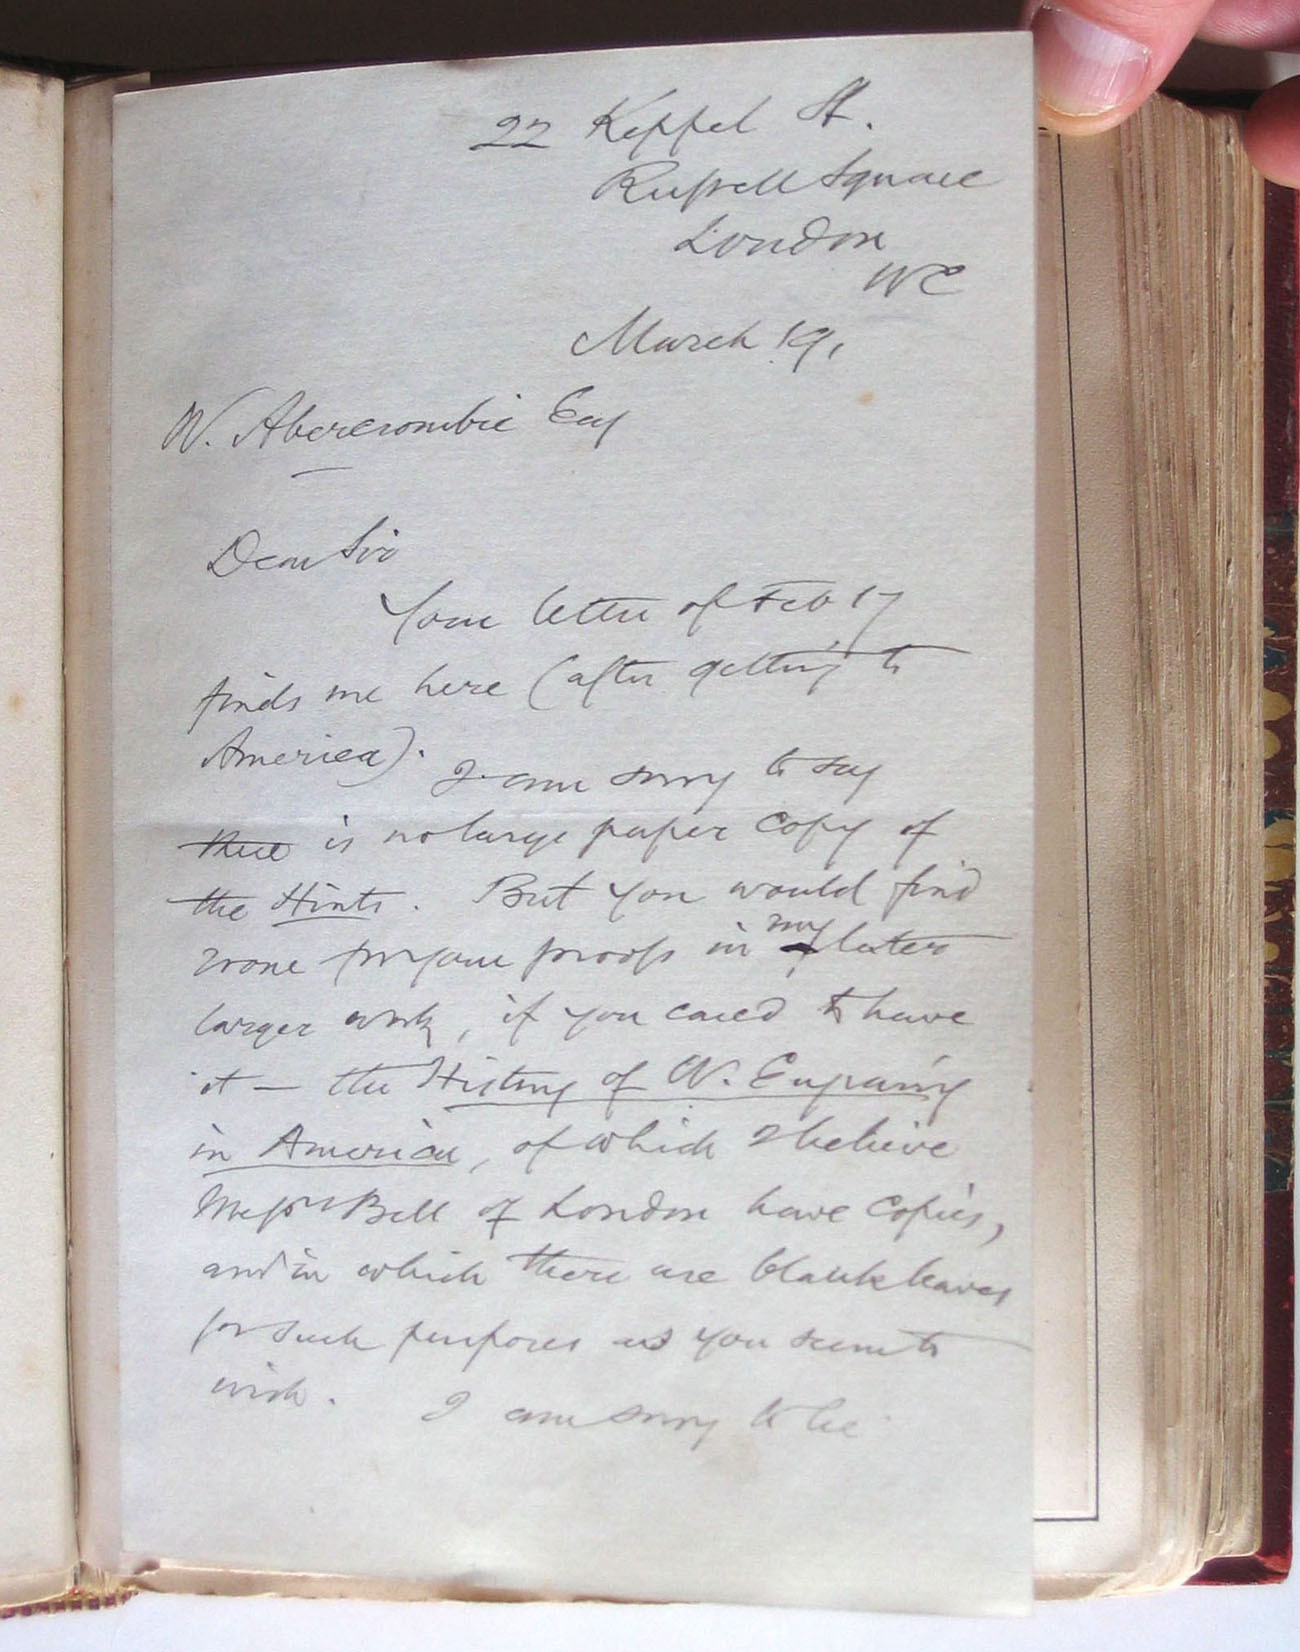 22 Keppel St.
Russell Square
London
WC
March 19,
W. Abercrombie Esq
Dear Sir
Your letter of Feb 17
finds me here (after getting to
America). I am sorry to say
there is no large paper copy of
the Hints. But you would find
room for your proofs in my later
larger work, if you cared to have
it — the History of W. Engraving
in America, of which I believe
Messrs Bell of London have copies,
and in which there are blank leaves
for such purposes as you seem to
wish. I am sorry to be